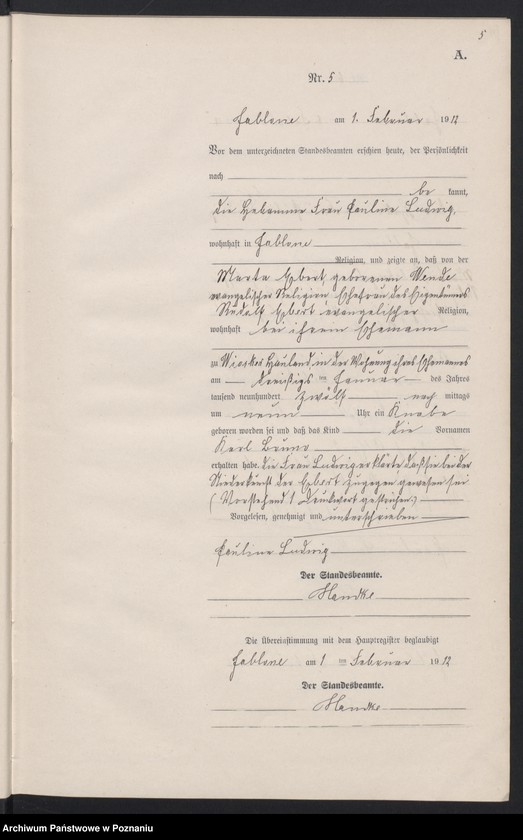 5
A.
Nr. 5
Jablone am 1. Februar 1912
Vor dem unterzeichneten Standesbeamten erschien heute, der Persönlichkeit
nach
be kannt,
die Hebamme Frau Pauline Ludwig,
wohnhaft in Jablone
Religion, und zeigte an, daß von der
Marta Ebert, geborenen Wende
evangelischer Religion, Ehefrau des Eigentümers
Ebert evangelischer Religion,
wohnhaft bei ihrem Ehemann
zu Hauland in der Wohnung ihres Ehemannes
am dreißigsten Januar des Jahres
tausend neunhundert zwölf nach mittags
um neun Uhr ein Knabe
geboren worden sei und daß das Kind die Vornamen
Karl Bruno
erhalten habe. Die Frau Ludwig erklärte, daß sie bei der
Niederkunft der Ebert zugegen gewesen sei
(Vorstehend 1 Druckwort gestrichen.)
Vorgelesen, genehmigt und unterschrieben
Pauline Ludwig
Der Standesbeamte.
Die Übereinstimmung mit dem Hauptregister beglaubigt
Jablone am 1 ten Februar 1912
Der Standesbeamte.
Archiwum Państwowe w Poznaniu